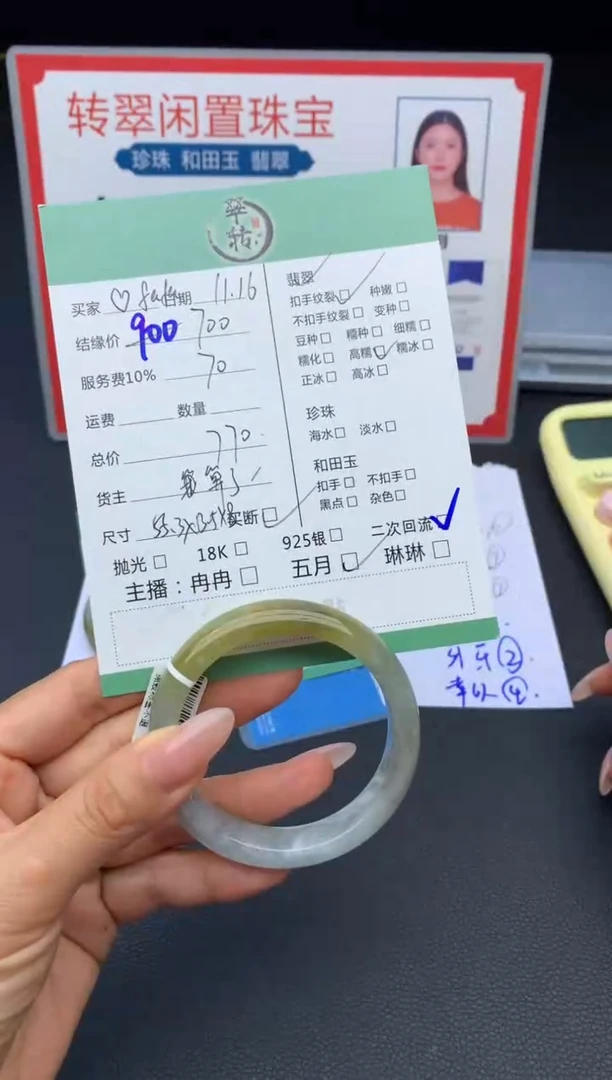 转翠闲置珠宝
珍珠 和田玉 翡翠
翠转
买家 ♡ 日期 11.16
结缘价 900 700
服务费10% 70
运费 数量
总价 770.
货主 算了
尺寸 买断☑
抛光□ 18K□ 925银□ 二次回流☑
主播：冉冉□ 五月☑ 琳琳□
翡翠
扣手纹裂☑ 种嫩□
不扣手纹裂□ 变种□
豆种□ 糯种□ 细糯□
糯化□ 高糯☑ 糯冰□
正冰□ 高冰□
珍珠
海水□ 淡水□
和田玉
扣手□ 不扣手□
黑点□ 杂色□